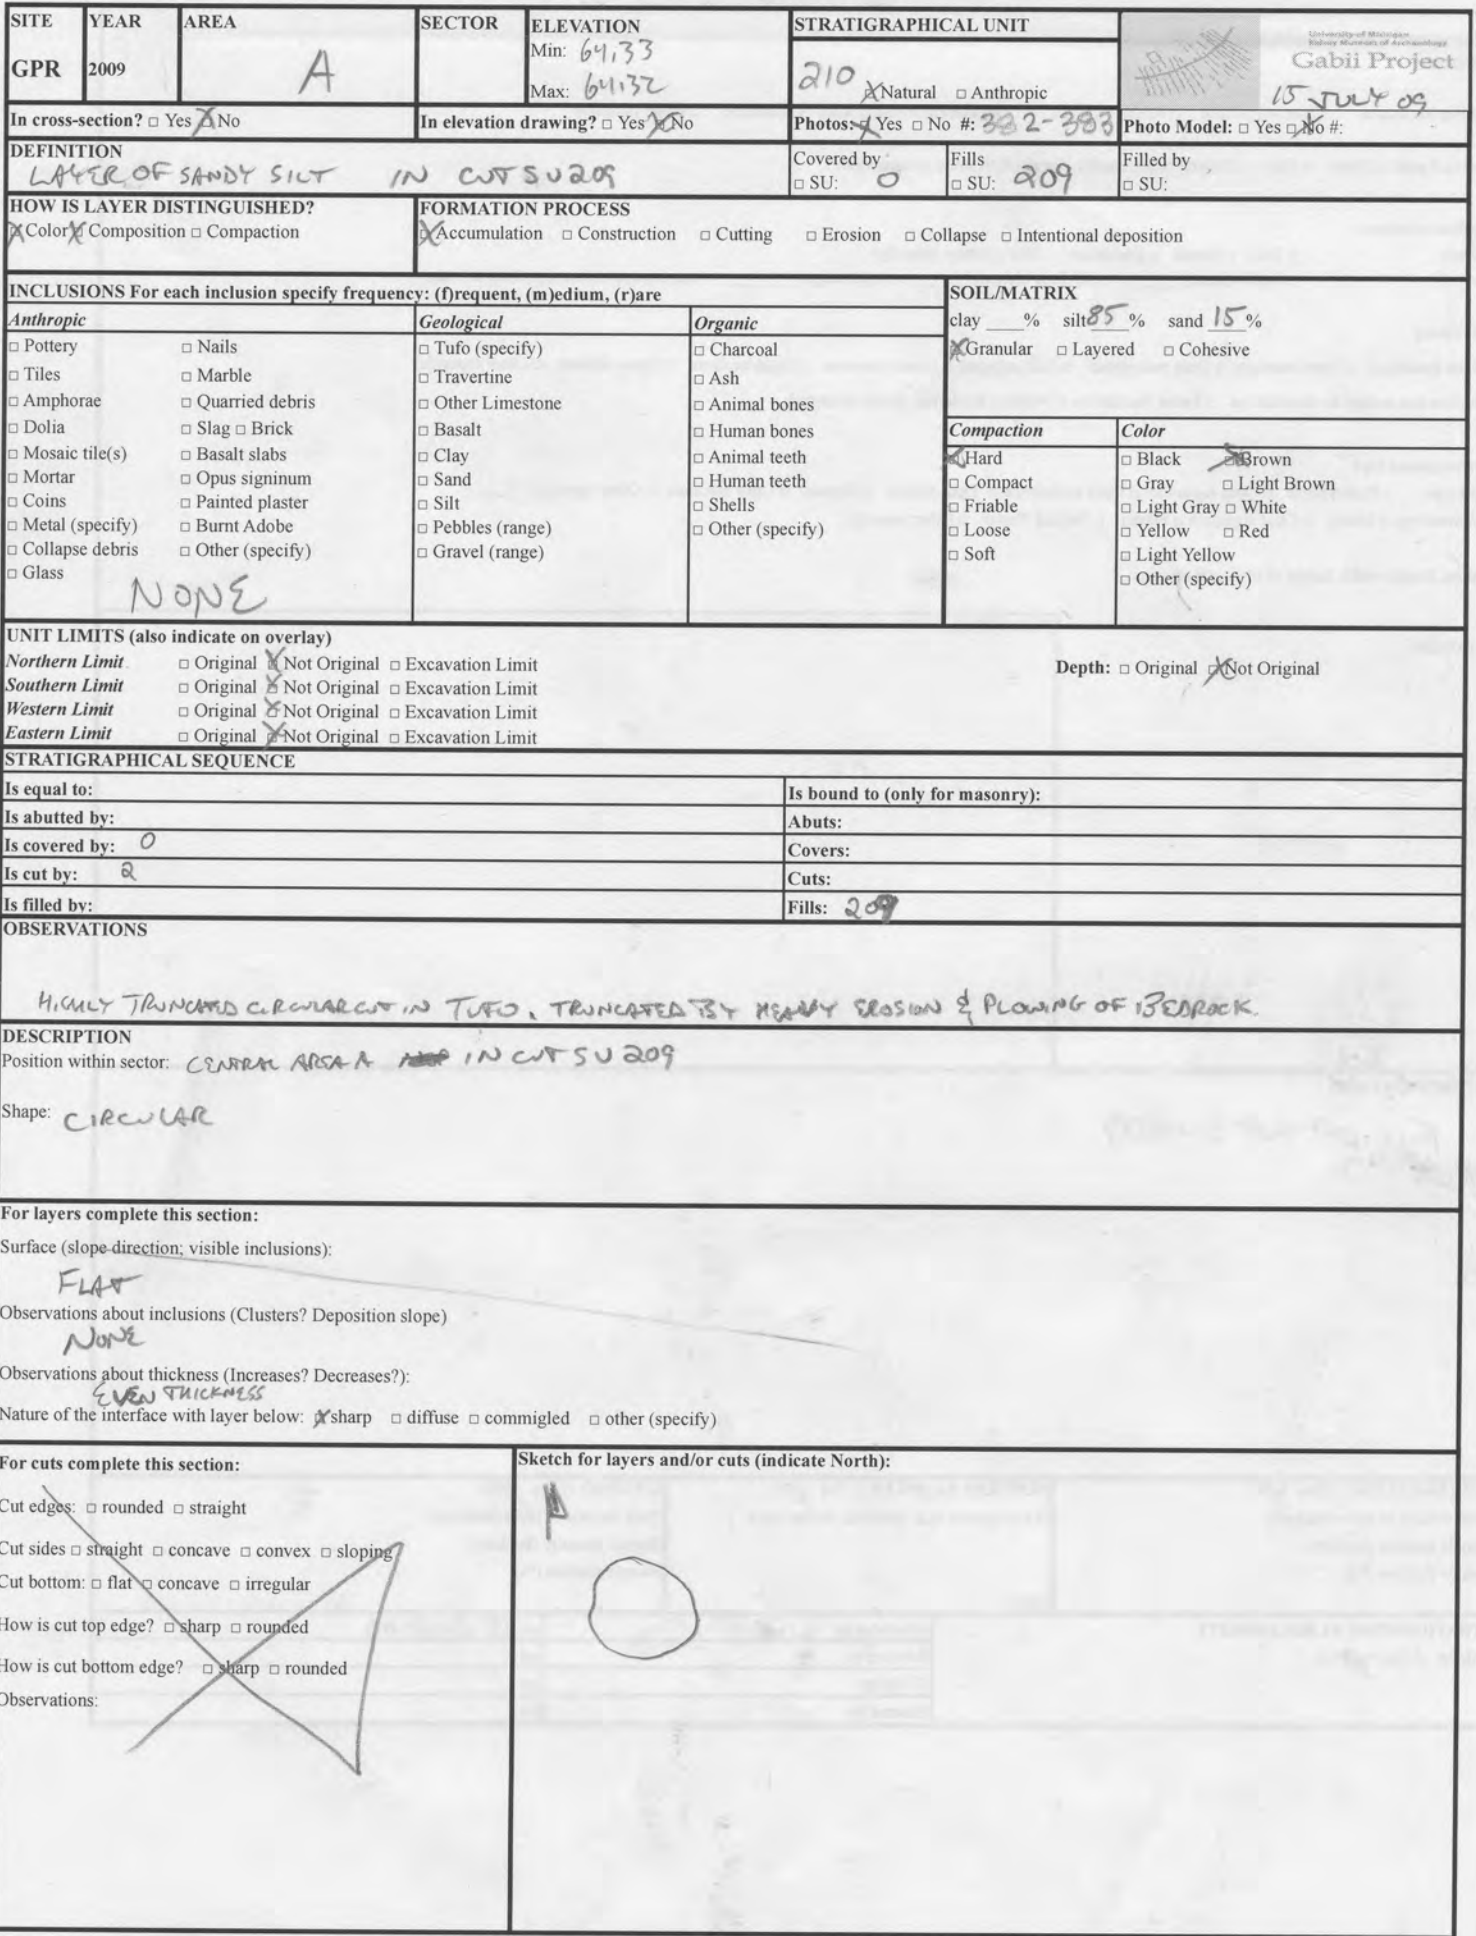 SITE YEAR AREA SECTOR ELEVATION STRATIGRAPHICAL UNIT
University of Michigan
Kelsey Museum of Archaeology
Gabii Project
GPR 2009 A Min: 64,33
Max: 64,32
210 ☒ Natural □ Anthropic
15 JULY 09
In cross-section? □ Yes ☒ No In elevation drawing? □ Yes ☒ No Photos: ☒ Yes □ No #: 382-383 Photo Model: □ Yes ☒ No #:
DEFINITION
LAYER OF SANDY SILT IN CUT SU209
Covered by
□ SU: 0
Fills
□ SU: 209
Filled by
□ SU:
HOW IS LAYER DISTINGUISHED?
☒ Color ☒ Composition □ Compaction
FORMATION PROCESS
☒ Accumulation □ Construction □ Cutting □ Erosion □ Collapse □ Intentional deposition
INCLUSIONS For each inclusion specify frequency: (f)requent, (m)edium, (r)are
Anthropic
□ Pottery □ Nails
□ Tiles □ Marble
□ Amphorae □ Quarried debris
□ Dolia □ Slag □ Brick
□ Mosaic tile(s) □ Basalt slabs
□ Mortar □ Opus signinum
□ Coins □ Painted plaster
□ Metal (specify) □ Burnt Adobe
□ Collapse debris □ Other (specify)
□ Glass
NONE
Geological
□ Tufo (specify)
□ Travertine
□ Other Limestone
□ Basalt
□ Clay
□ Sand
□ Silt
□ Pebbles (range)
□ Gravel (range)
Organic
□ Charcoal
□ Ash
□ Animal bones
□ Human bones
□ Animal teeth
□ Human teeth
□ Shells
□ Other (specify)
SOIL/MATRIX
clay ____% silt 85 % sand 15 %
☒ Granular □ Layered □ Cohesive
Compaction
☒ Hard
□ Compact
□ Friable
□ Loose
□ Soft
Color
□ Black ☒ Brown
□ Gray □ Light Brown
□ Light Gray □ White
□ Yellow □ Red
□ Light Yellow
□ Other (specify)
UNIT LIMITS (also indicate on overlay)
Northern Limit □ Original ☒ Not Original □ Excavation Limit
Depth: □ Original ☒ Not Original
Southern Limit □ Original ☒ Not Original □ Excavation Limit
Western Limit □ Original ☒ Not Original □ Excavation Limit
Eastern Limit □ Original ☒ Not Original □ Excavation Limit
STRATIGRAPHICAL SEQUENCE
Is equal to: Is bound to (only for masonry):
Is abutted by: Abuts:
Is covered by: 0 Covers:
Is cut by: 2 Cuts:
Is filled by: Fills: 209
OBSERVATIONS
HIGHLY TRUNCATED CIRCULAR CUT IN TUFO. TRUNCATED BY HEAVY EROSION & PLOWING OF BEDROCK.
DESCRIPTION
Position within sector: CENTRAL AREA A IN CUT SU 209
Shape: CIRCULAR
For layers complete this section:
Surface (slope direction; visible inclusions):
FLAT
Observations about inclusions (Clusters? Deposition slope)
NONE
Observations about thickness (Increases? Decreases?):
EVEN THICKNESS
Nature of the interface with layer below: ☒ sharp □ diffuse □ commigled □ other (specify)
For cuts complete this section:
Cut edges: □ rounded □ straight
Cut sides □ straight □ concave □ convex □ sloping
Cut bottom: □ flat □ concave □ irregular
How is cut top edge? □ sharp □ rounded
How is cut bottom edge? □ sharp □ rounded
Observations:
Sketch for layers and/or cuts (indicate North):